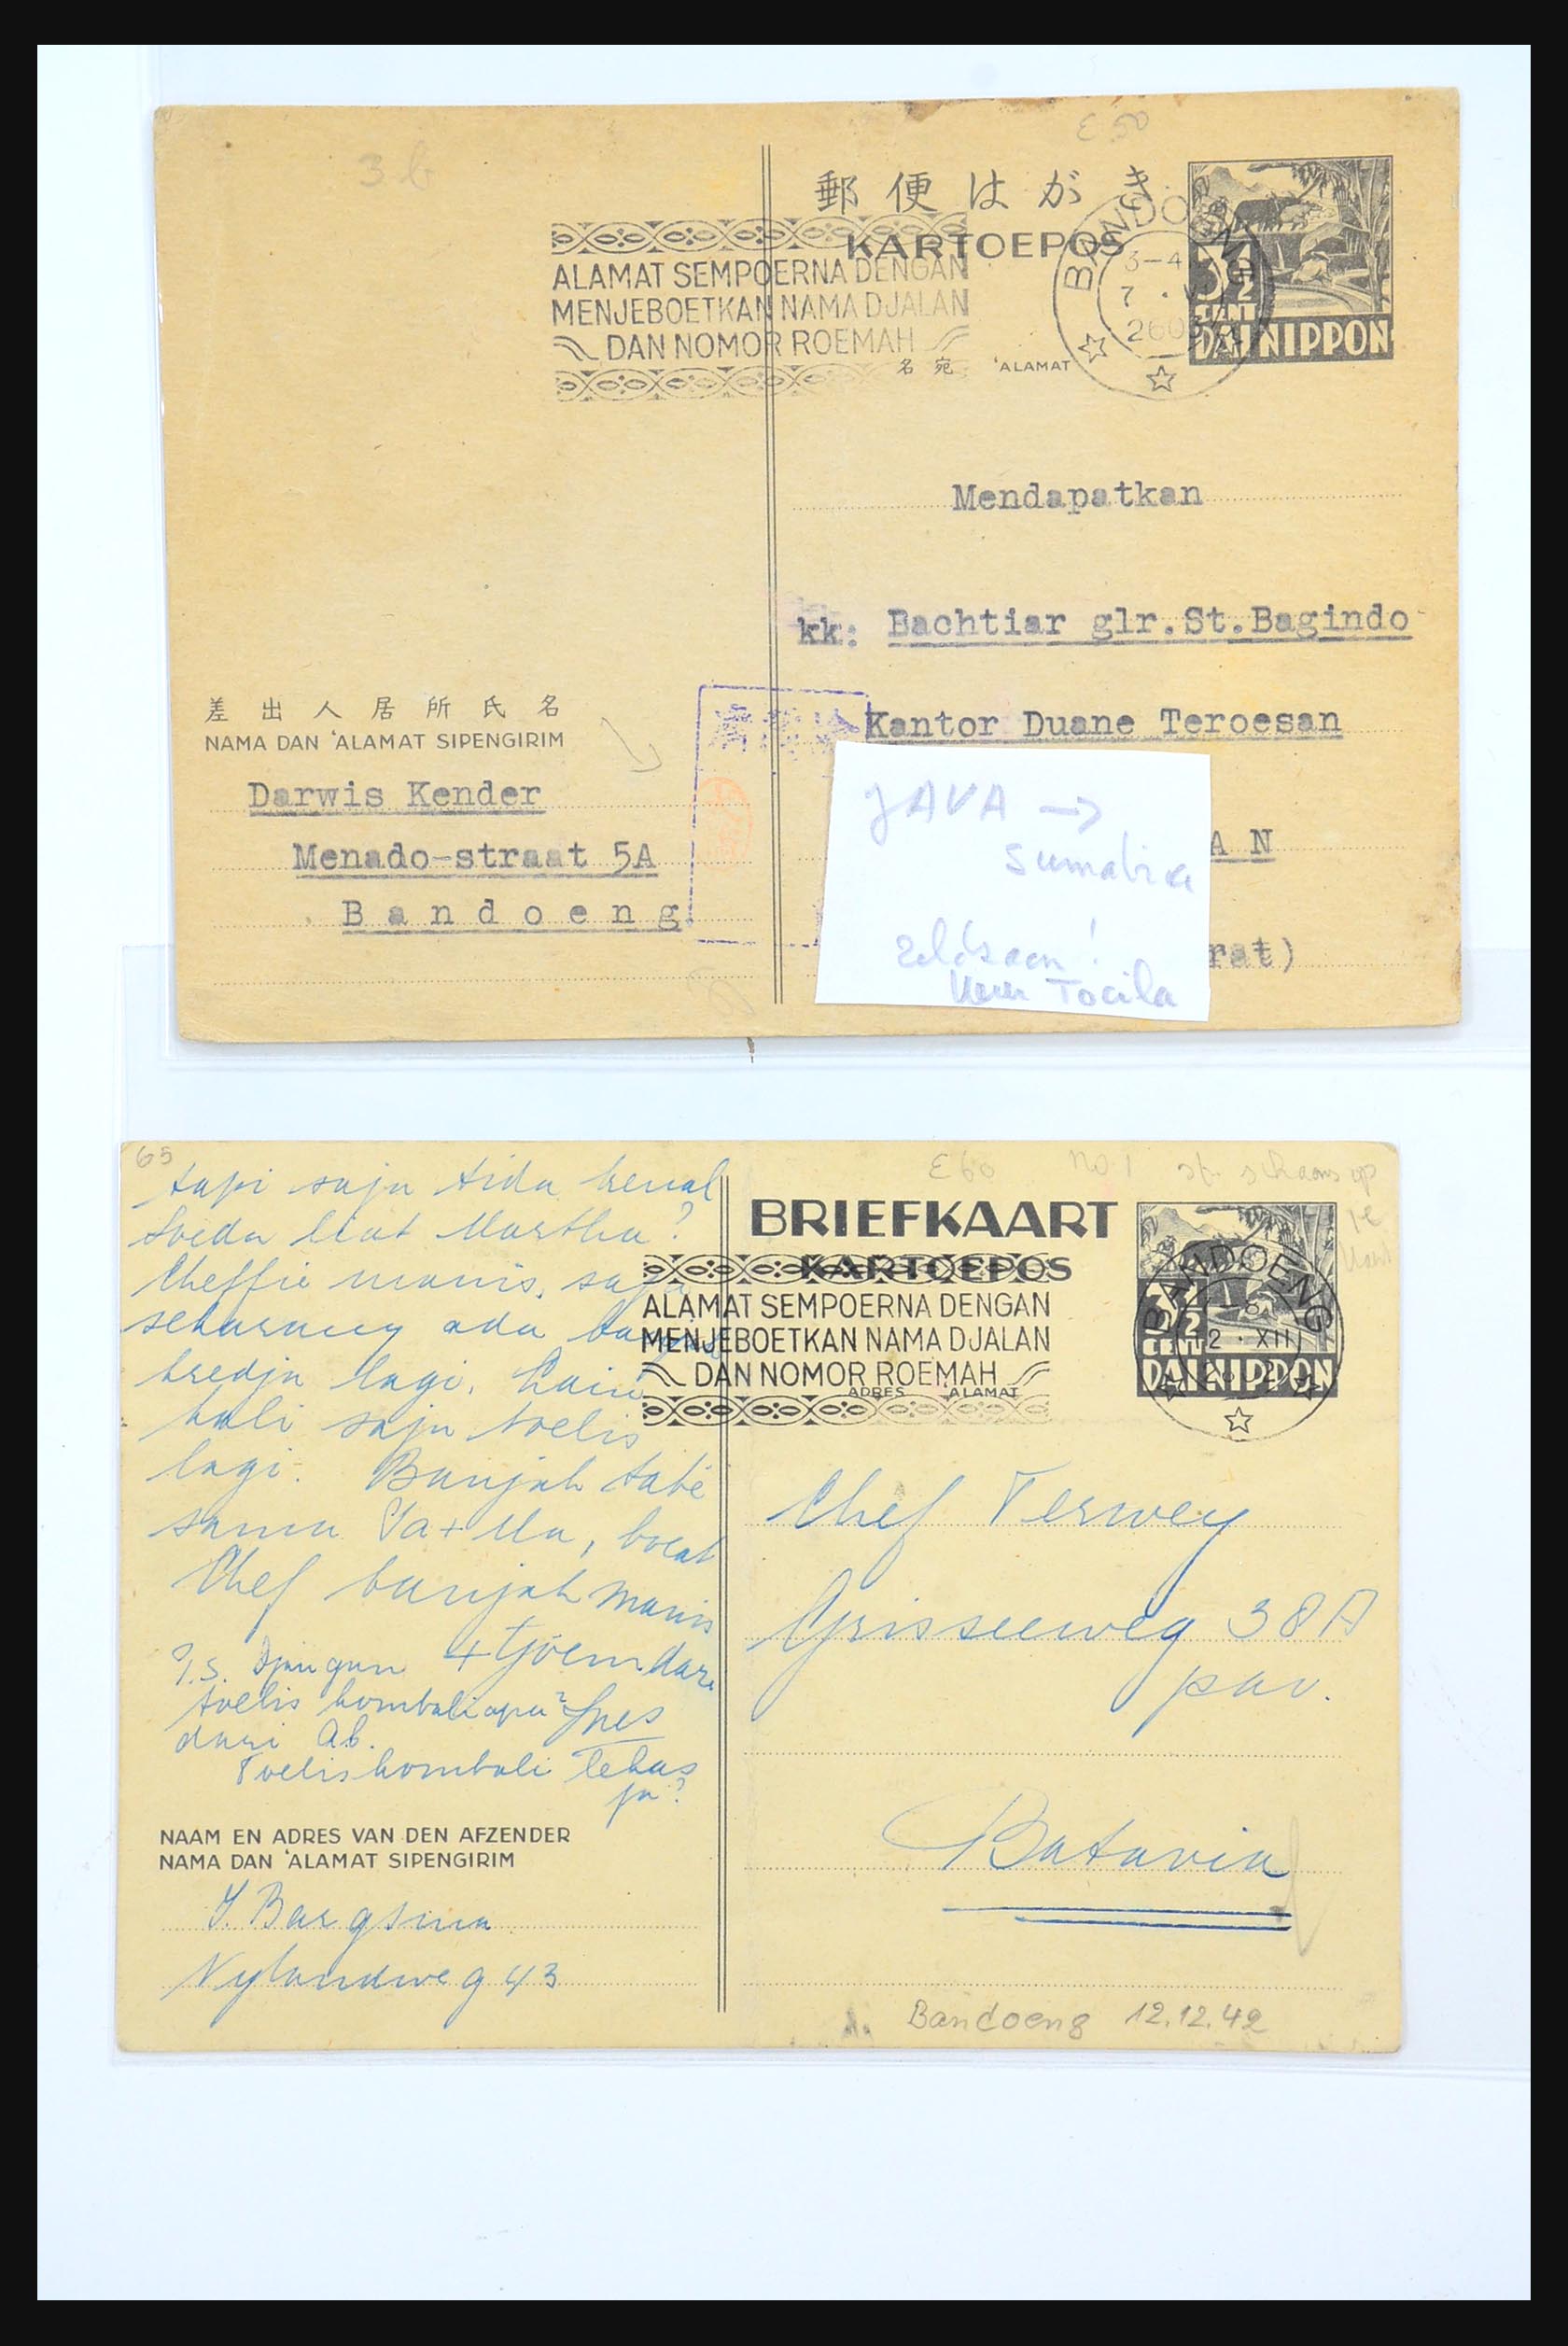 3 b
E 50
郵便はがき
KARTOEPOS
ALAMAT SEMPOERNA DENGAN
MENJEBOETKAN NAMA DJALAN
DAN NOMOR ROEMAH
BANDOENG
3-4
7
3½
CENT
DAI NIPPON
名宛 'ALAMAT
Mendapatkan
kk: Bachtiar glr.St.Bagindo
Kantor Duane Teroesan
A N
rat)
JAVA →
Sumatra
zeldzaam!
Tocila
差出人居所氏名
NAMA DAN 'ALAMAT SIPENGIRIM
Darwis Kender
Menado-straat 5A
Bandoeng
65
E 60
no 1
tapi saja tida kenal
Soeda liat Martha?
Cheffie manis, saja
sekarang ada banjak
kredja lagi. Lain
kali saja toelis
lagi. Banjak tabé
sama Pa + Ma, boeat
Chef banjak manis
+ tjoem dari
P.S. Djangan
toelis kombali apa2
Ines
dari Ab.
Toelis kombali lekas
ja?
BRIEFKAART
KARTOEPOS
ALAMAT SEMPOERNA DENGAN
MENJEBOETKAN NAMA DJALAN
DAN NOMOR ROEMAH
ADRES ALAMAT
BANDOENG
2 · XII
3½
CENT
DAI NIPPON
Chef Terwey
Grisseeweg 38A
pav.
Batavia
NAAM EN ADRES VAN DEN AFZENDER
NAMA DAN 'ALAMAT SIPENGIRIM
Nylandweg 43
Bandoeng 12.12.42